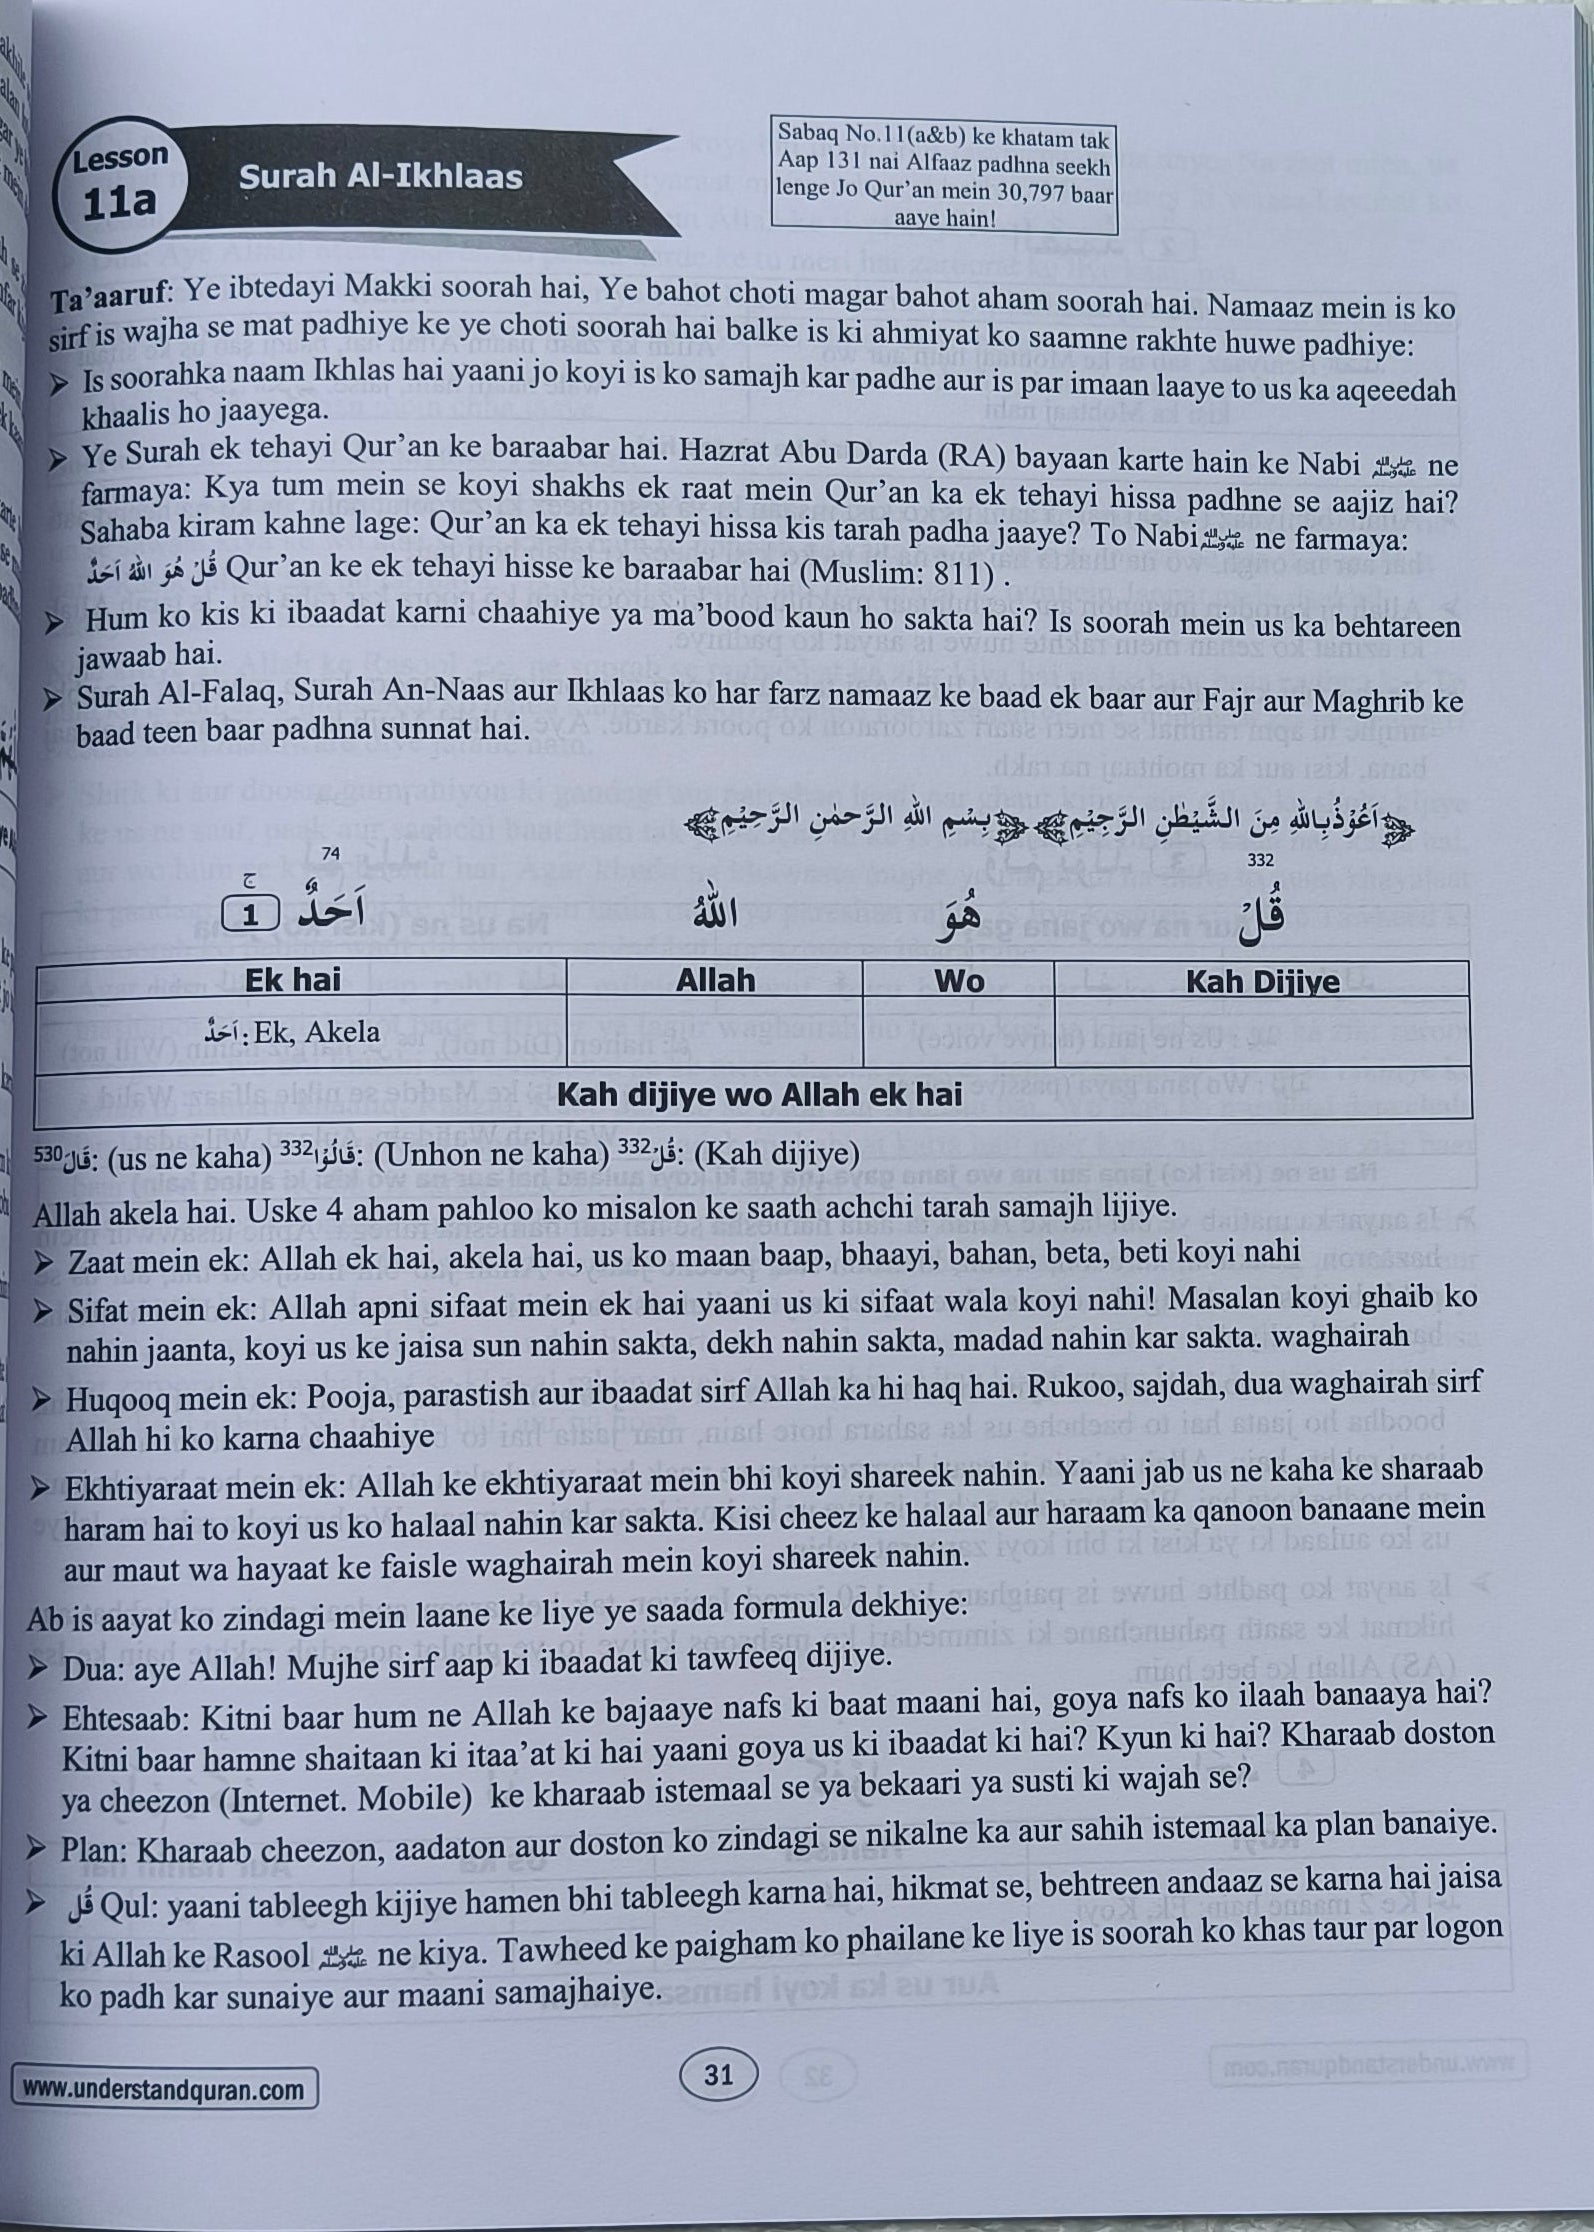 Lesson
11a
Surah Al-Ikhlaas
Sabaq No.11(a&b) ke khatam tak
Aap 131 nai Alfaaz padhna seekh
lenge Jo Qur'an mein 30,797 baar
aaye hain!
Ta'aaruf: Ye ibtedayi Makki soorah hai, Ye bahot choti magar bahot aham soorah hai. Namaaz mein is ko
sirf is wajha se mat padhiye ke ye choti soorah hai balke is ki ahmiyat ko saamne rakhte huwe padhiye:
➢ Is soorahka naam Ikhlas hai yaani jo koyi is ko samajh kar padhe aur is par imaan laaye to us ka aqeeedah
khaalis ho jaayega.
➢ Ye Surah ek tehayi Qur'an ke baraabar hai. Hazrat Abu Darda (RA) bayaan karte hain ke Nabi ﷺ ne
farmaya: Kya tum mein se koyi shakhs ek raat mein Qur'an ka ek tehayi hissa padhne se aajiz hai?
Sahaba kiram kahne lage: Qur'an ka ek tehayi hissa kis tarah padha jaaye? To Nabi ﷺ ne farmaya:
قُلْ هُوَ اللهُ اَحَدٌ Qur'an ke ek tehayi hisse ke baraabar hai (Muslim: 811) .
➢ Hum ko kis ki ibaadat karni chaahiye ya ma'bood kaun ho sakta hai? Is soorah mein us ka behtareen
jawaab hai.
➢ Surah Al-Falaq, Surah An-Naas aur Ikhlaas ko har farz namaaz ke baad ek baar aur Fajr aur Maghrib ke
baad teen baar padhna sunnat hai.
﴿اَعُوْذُ بِاللهِ مِنَ الشَّيْطٰنِ الرَّجِيْمِ﴾ ﴿بِسْمِ اللهِ الرَّحْمٰنِ الرَّحِيْمِ﴾
332 74
قُلْ هُوَ اللهُ اَحَدٌ ۚ 1
Ek hai Allah Wo Kah Dijiye
اَحَدٌ: Ek, Akela
Kah dijiye wo Allah ek hai
530قَالَ: (us ne kaha) 332قَالُوْا: (Unhon ne kaha) 332قُلْ: (Kah dijiye)
Allah akela hai. Uske 4 aham pahloo ko misalon ke saath achchi tarah samajh lijiye.
➢ Zaat mein ek: Allah ek hai, akela hai, us ko maan baap, bhaayi, bahan, beta, beti koyi nahi
➢ Sifat mein ek: Allah apni sifaat mein ek hai yaani us ki sifaat wala koyi nahi! Masalan koyi ghaib ko
nahin jaanta, koyi us ke jaisa sun nahin sakta, dekh nahin sakta, madad nahin kar sakta. waghairah
➢ Huqooq mein ek: Pooja, parastish aur ibaadat sirf Allah ka hi haq hai. Rukoo, sajdah, dua waghairah sirf
Allah hi ko karna chaahiye
➢ Ekhtiyaraat mein ek: Allah ke ekhtiyaraat mein bhi koyi shareek nahin. Yaani jab us ne kaha ke sharaab
haram hai to koyi us ko halaal nahin kar sakta. Kisi cheez ke halaal aur haraam ka qanoon banaane mein
aur maut wa hayaat ke faisle waghairah mein koyi shareek nahin.
Ab is aayat ko zindagi mein laane ke liye ye saada formula dekhiye:
➢ Dua: aye Allah! Mujhe sirf aap ki ibaadat ki tawfeeq dijiye.
➢ Ehtesaab: Kitni baar hum ne Allah ke bajaaye nafs ki baat maani hai, goya nafs ko ilaah banaaya hai?
Kitni baar hamne shaitaan ki itaa'at ki hai yaani goya us ki ibaadat ki hai? Kyun ki hai? Kharaab doston
ya cheezon (Internet. Mobile) ke kharaab istemaal se ya bekaari ya susti ki wajah se?
➢ Plan: Kharaab cheezon, aadaton aur doston ko zindagi se nikalne ka aur sahih istemaal ka plan banaiye.
➢ قُل Qul: yaani tableegh kijiye hamen bhi tableegh karna hai, hikmat se, behtreen andaaz se karna hai jaisa
ki Allah ke Rasool ﷺ ne kiya. Tawheed ke paigham ko phailane ke liye is soorah ko khas taur par logon
ko padh kar sunaiye aur maani samajhaiye.
www.understandquran.com
31